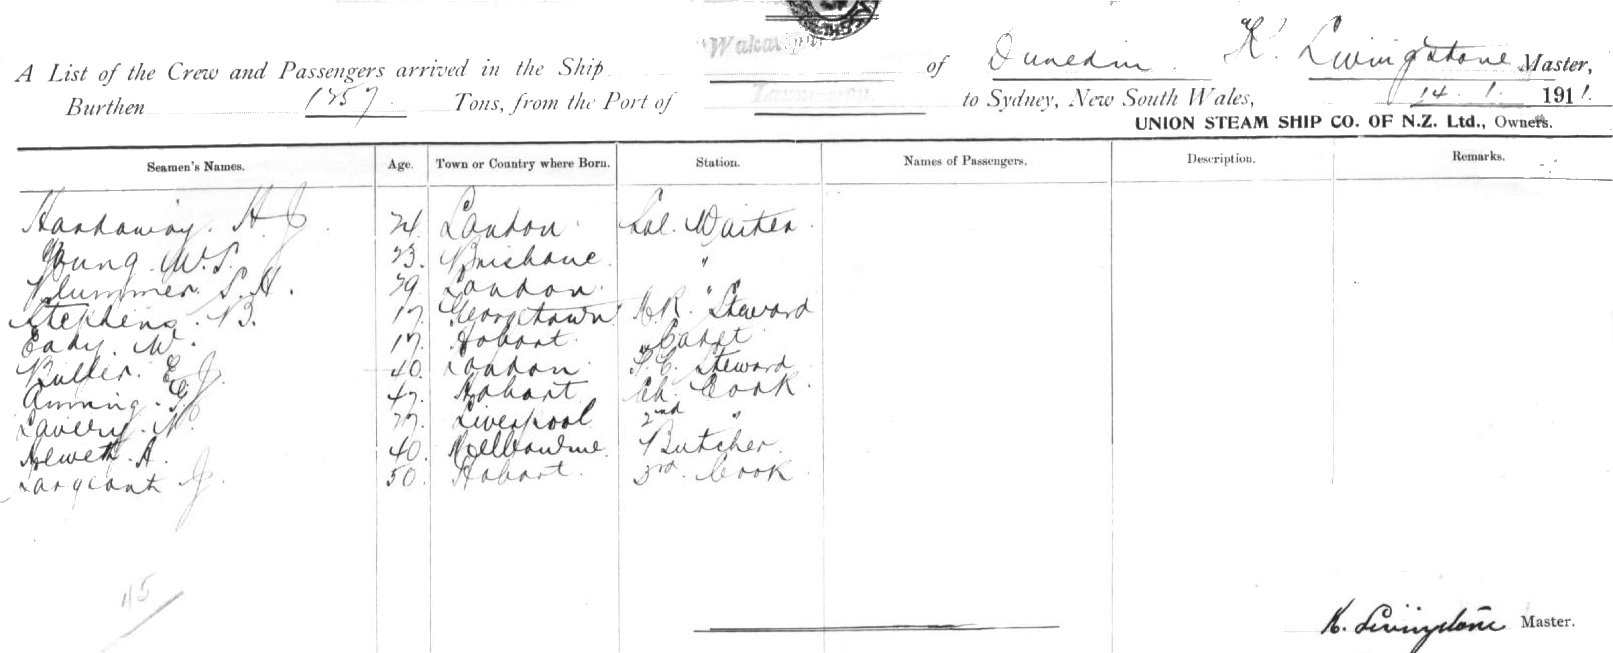 A List of the Crew and Passengers arrived in the Ship of Dunedin K. Livingstone Master,
Burthen 1257 Tons, from the Port of to Sydney, New South Wales, 14. 1. 1911.
UNION STEAM SHIP CO. OF N.Z. Ltd., Owners.
Seamen's Names. Age. Town or Country where Born. Station. Names of Passengers. Description. Remarks.
H. J 24. London. Sal. Waiter.
Young. W. S. 23. Brisbane. "
Plummer. S. H. 29. London. "
Stephens. B. 17. Georgetown A.R. Steward
Eady. W. 17. Hobart. " Cadet
Butler. E. J. 40. London. S. C. Steward
Amming. G. J 47. Hobart Ch. Cook.
Lavery. N. 27. Liverpool 2nd "
A. 40. Melbourne. Butcher.
Sargeant J. 50. Hobart. 3rd. Cook
45
K. Livingstone Master.